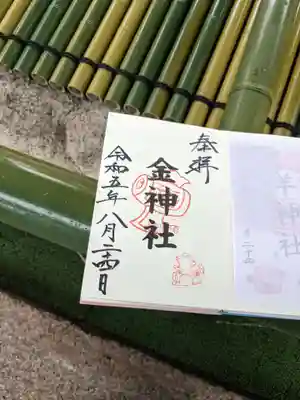 奉拝
金神社
令和五年八月二十四日
羊神社